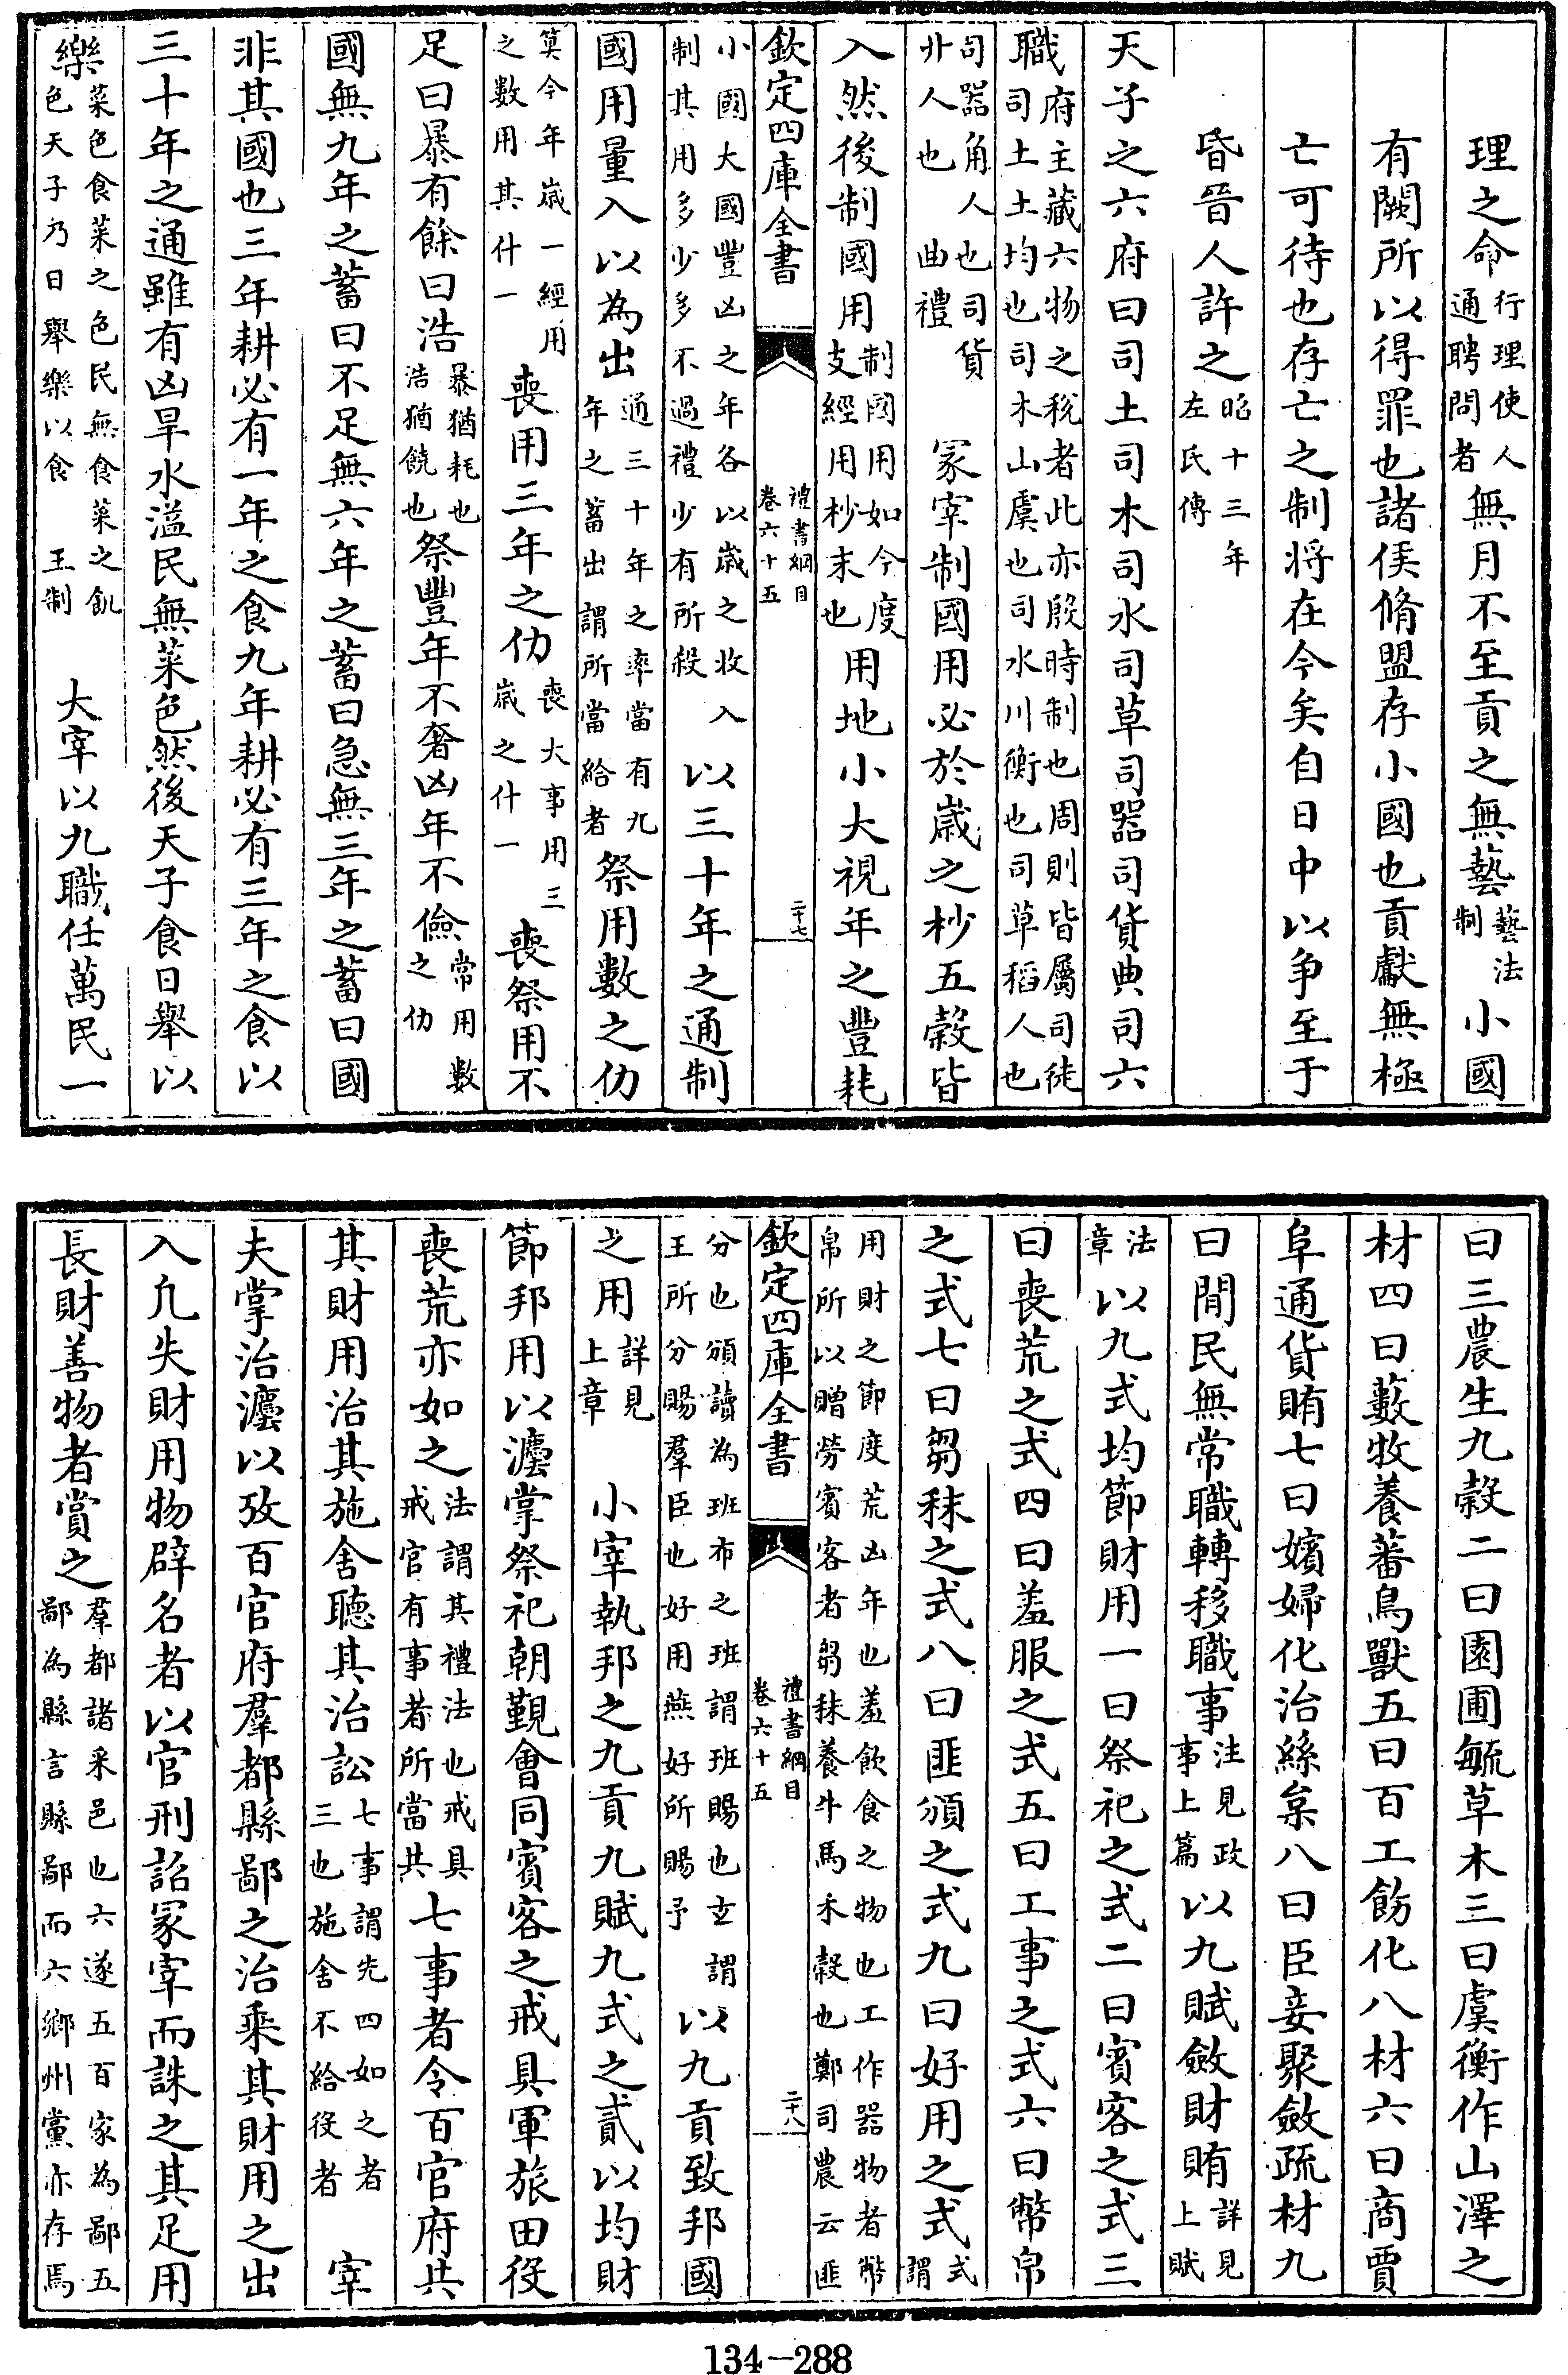 理之命行理使人通聘問者無月不至貢之無藝藝法制小國
有闕所以得罪也諸侯脩盟存小國也貢獻無極
亡可待也存亡之制将在今矣自日中以争至于
昏晉人許之昭十三年左氏傳
天子之六府曰司土司木司水司草司器司貨典司六
職府主藏六物之稅者此亦殷時制也周則皆屬司徒司土土均也司木山虞也司水川衡也司草稻人也
司器角人也司貨卝人也 曲禮 冢宰制國用必於歳之杪五榖皆
入然後制國用制國用如今度支經用杪末也用地小大視年之豐耗
欽定四庫全書 禮書綱目卷六十五 二十七
小國大國豐凶之年各以歳之收入制其用多少多不過禮少有所殺 以三十年之通制
國用量入以為出通三十年之率當有九年之蓄出謂所當給者祭用數之仂
筭今年歳一經用之數用其什一喪用三年之仂喪大事用三歳之什一喪祭用不
足曰暴有餘曰浩暴猶耗也浩猶饒也祭豐年不奢凶年不儉常用數之仂
國無九年之蓄曰不足無六年之蓄曰急無三年之蓄曰國
非其國也三年耕必有一年之食九年耕必有三年之食以
三十年之通雖有凶旱水溢民無菜色然後天子食日舉以
樂菜色食菜之色民無食菜之飢色天子乃日舉樂以食 王制 大宰以九職任萬民一
曰三農生九榖二曰園圃毓草木三曰虞衡作山澤之
材四曰藪牧養蕃鳥獸五曰百工飭化八材六曰商賈
阜通貨賄七曰嬪婦化治絲枲八曰臣妾聚斂疏材九
曰閒民無常職轉移職事注見政事上篇以九賦斂財賄詳見上賦
法章以九式均節財用一曰祭祀之式二曰賓客之式三
曰喪荒之式四曰羞服之式五曰工事之式六曰幣帛
之式七曰芻秣之式八曰匪頒之式九曰好用之式式謂
用財之節度荒凶年也羞飲食之物也工作器物者幣帛所以贈勞賓客者芻秣養牛馬禾榖也鄭司農云匪
欽定四庫全書 禮書綱目卷六十五 二十八
分也頒讀為班布之班謂班賜也玄謂王所分賜羣臣也好用燕好所賜予 以九貢致邦國
之用詳見上章 小宰執邦之九貢九賦九式之貳以均財
節邦用以灋掌祭祀朝覲會同賓客之戒具軍旅田役
喪荒亦如之法謂其禮法也戒具戒官有事者所當共七事者令百官府共
其財用治其施舍聽其治訟七事謂先四如之者三也施舍不給役者 宰
夫掌治灋以攷百官府羣都縣鄙之治乘其財用之出
入凡失財用物辟名者以官刑詔冢宰而誅之其足用
長財善物者賞之羣都諸采邑也六遂五百家為鄙五鄙為縣言縣鄙而六鄉州黨亦存焉
134-288